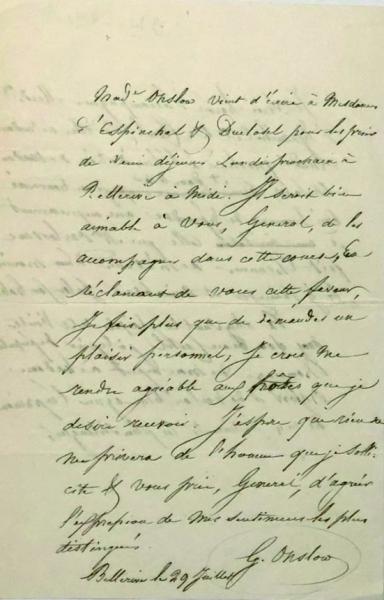 Mad.e Onslow vient d'écrire à Mesdames
d'Espinchal & Duclosel pour les prier
de venir déjeuner Lundi prochain à
Bellerive à Midi. Il seroit bien
aimable à vous, Général, de les
accompagner dans cette course, En
réclamant de vous cette faveur,
Je fais plus que de demander un
plaisir personnel, je crois me
rendre agréable aux hôtes que je
désire recevoir. J'espère que rien ne
me privera de l'honneur que je solli-
cite & vous prie, Général, d'agréer
l'expression de mes sentimens les plus
distingués.
G. Onslow
Bellerive le 29 Juillet